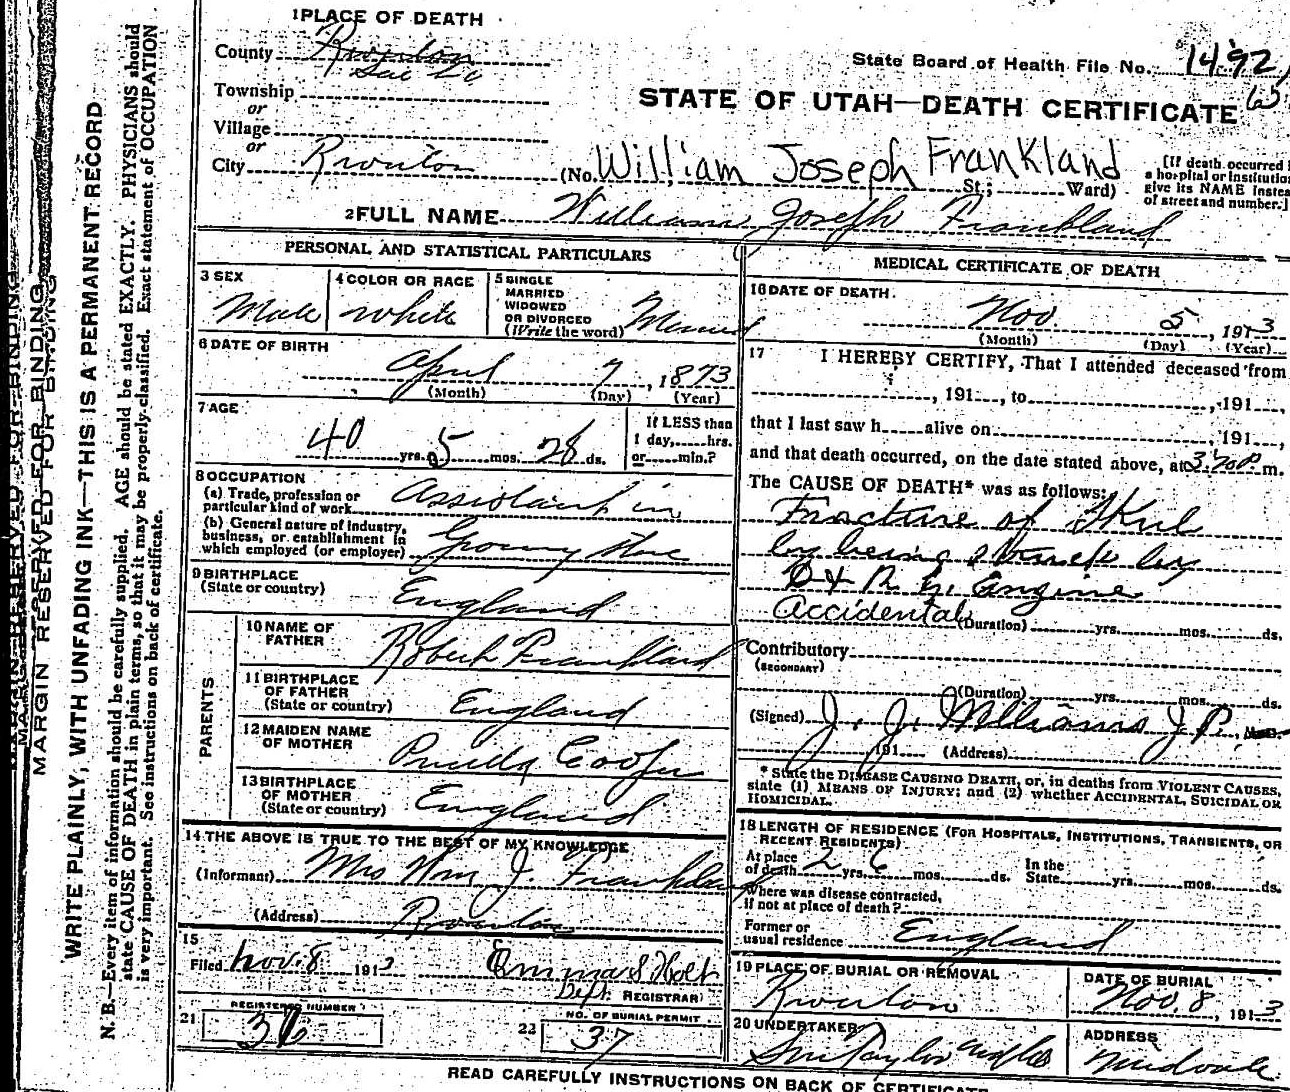 1 PLACE OF DEATH
County Riverton
Township
or
Village
or
City Riverton
State Board of Health File No. 1492
65
STATE OF UTAH—DEATH CERTIFICATE
(No. William Joseph Frankland St.; Ward)
[If death occurred
a hospital or Institution
give its NAME instea
of street and number.]
2 FULL NAME William Joseph Frankland
PERSONAL AND STATISTICAL PARTICULARS
3 SEX
Male
4 COLOR OR RACE
White
5 SINGLE
MARRIED
WIDOWED
OR DIVORCED
(Write the word) Married
6 DATE OF BIRTH
April 7, 1873
(Month) (Day) (Year)
7 AGE
40 yrs. 5 mos. 28 ds.
If LESS than
1 day, hrs.
or min.?
8 OCCUPATION
(a) Trade, profession or
particular kind of work Assistant in
(b) General nature of industry,
business, or establishment in
which employed (or employer) Grocery Store
9 BIRTHPLACE
(State or country) England
PARENTS
10 NAME OF
FATHER Robert Frankland
11 BIRTHPLACE
OF FATHER
(State or country) England
12 MAIDEN NAME
OF MOTHER Cooper
13 BIRTHPLACE
OF MOTHER
(State or country) England
14 THE ABOVE IS TRUE TO THE BEST OF MY KNOWLEDGE
(Informant) Mrs Wm J. Frankland
(Address) Riverton
15
Filed Nov. 8 1913 Emma S Holt
Dept. REGISTRAR
REGISTERED NUMBER
21 36
NO. OF BURIAL PERMIT
22 37
MEDICAL CERTIFICATE OF DEATH
16 DATE OF DEATH.
Nov. 5, 1913
(Month) (Day) (Year)
17 I HEREBY CERTIFY, That I attended deceased from
, 191 , to , 191 ,
that I last saw h alive on , 191 ,
and that death occurred, on the date stated above, at m.
The CAUSE OF DEATH* was as follows:
Fracture of Skul
by being struck by
D & R G. Engine
Accidental
(Duration) yrs. mos. ds.
Contributory
(SECONDARY)
(Duration) yrs. mos. ds.
(Signed) J. J. Williams J.P.
, 191 (Address)
* State the DISEASE CAUSING DEATH, or, in deaths from VIOLENT CAUSES,
state (1) MEANS OF INJURY; and (2) whether ACCIDENTAL, SUICIDAL OR
HOMICIDAL.
18 LENGTH OF RESIDENCE (FOR HOSPITALS, INSTITUTIONS, TRANSIENTS, OR
RECENT RESIDENTS)
At place
of death 2 yrs. 6 mos. ds.
In the
State yrs. mos. ds.
Where was disease contracted,
if not at place of death?
Former or
usual residence England
19 PLACE OF BURIAL OR REMOVAL
Riverton
DATE OF BURIAL
Nov. 8, 1913
20 UNDERTAKER
ADDRESS
Midvale
READ CAREFULLY INSTRUCTIONS ON BACK OF CERTIFICATE
MARGIN RESERVED FOR BINDING
WRITE PLAINLY, WITH UNFADING INK—THIS IS A PERMANENT RECORD
N. B.—Every item of information should be carefully supplied. AGE should be stated EXACTLY. PHYSICIANS should
state CAUSE OF DEATH in plain terms, so that it may be properly classified. Exact statement of OCCUPATION
is very important. See instructions on back of certificate.